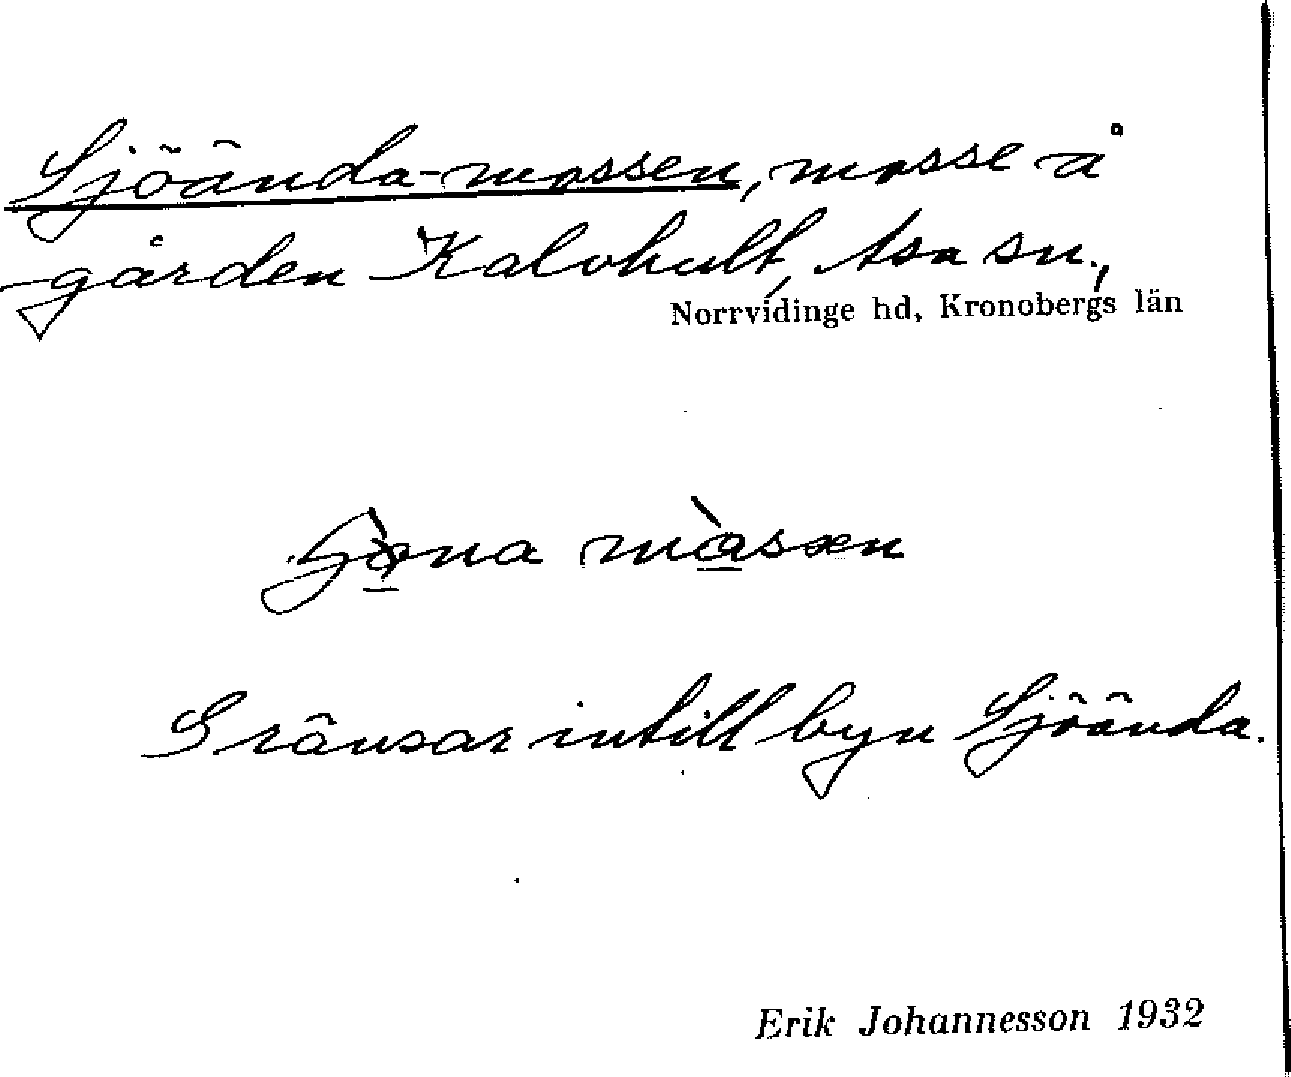 Sjöända-mossen, mosse å
gården Kalvhult, Asa sn.,
Norrvidinge hd, Kronobergs län
masen
Gränsar intill byn Sjöända.
Erik Johannesson 1932